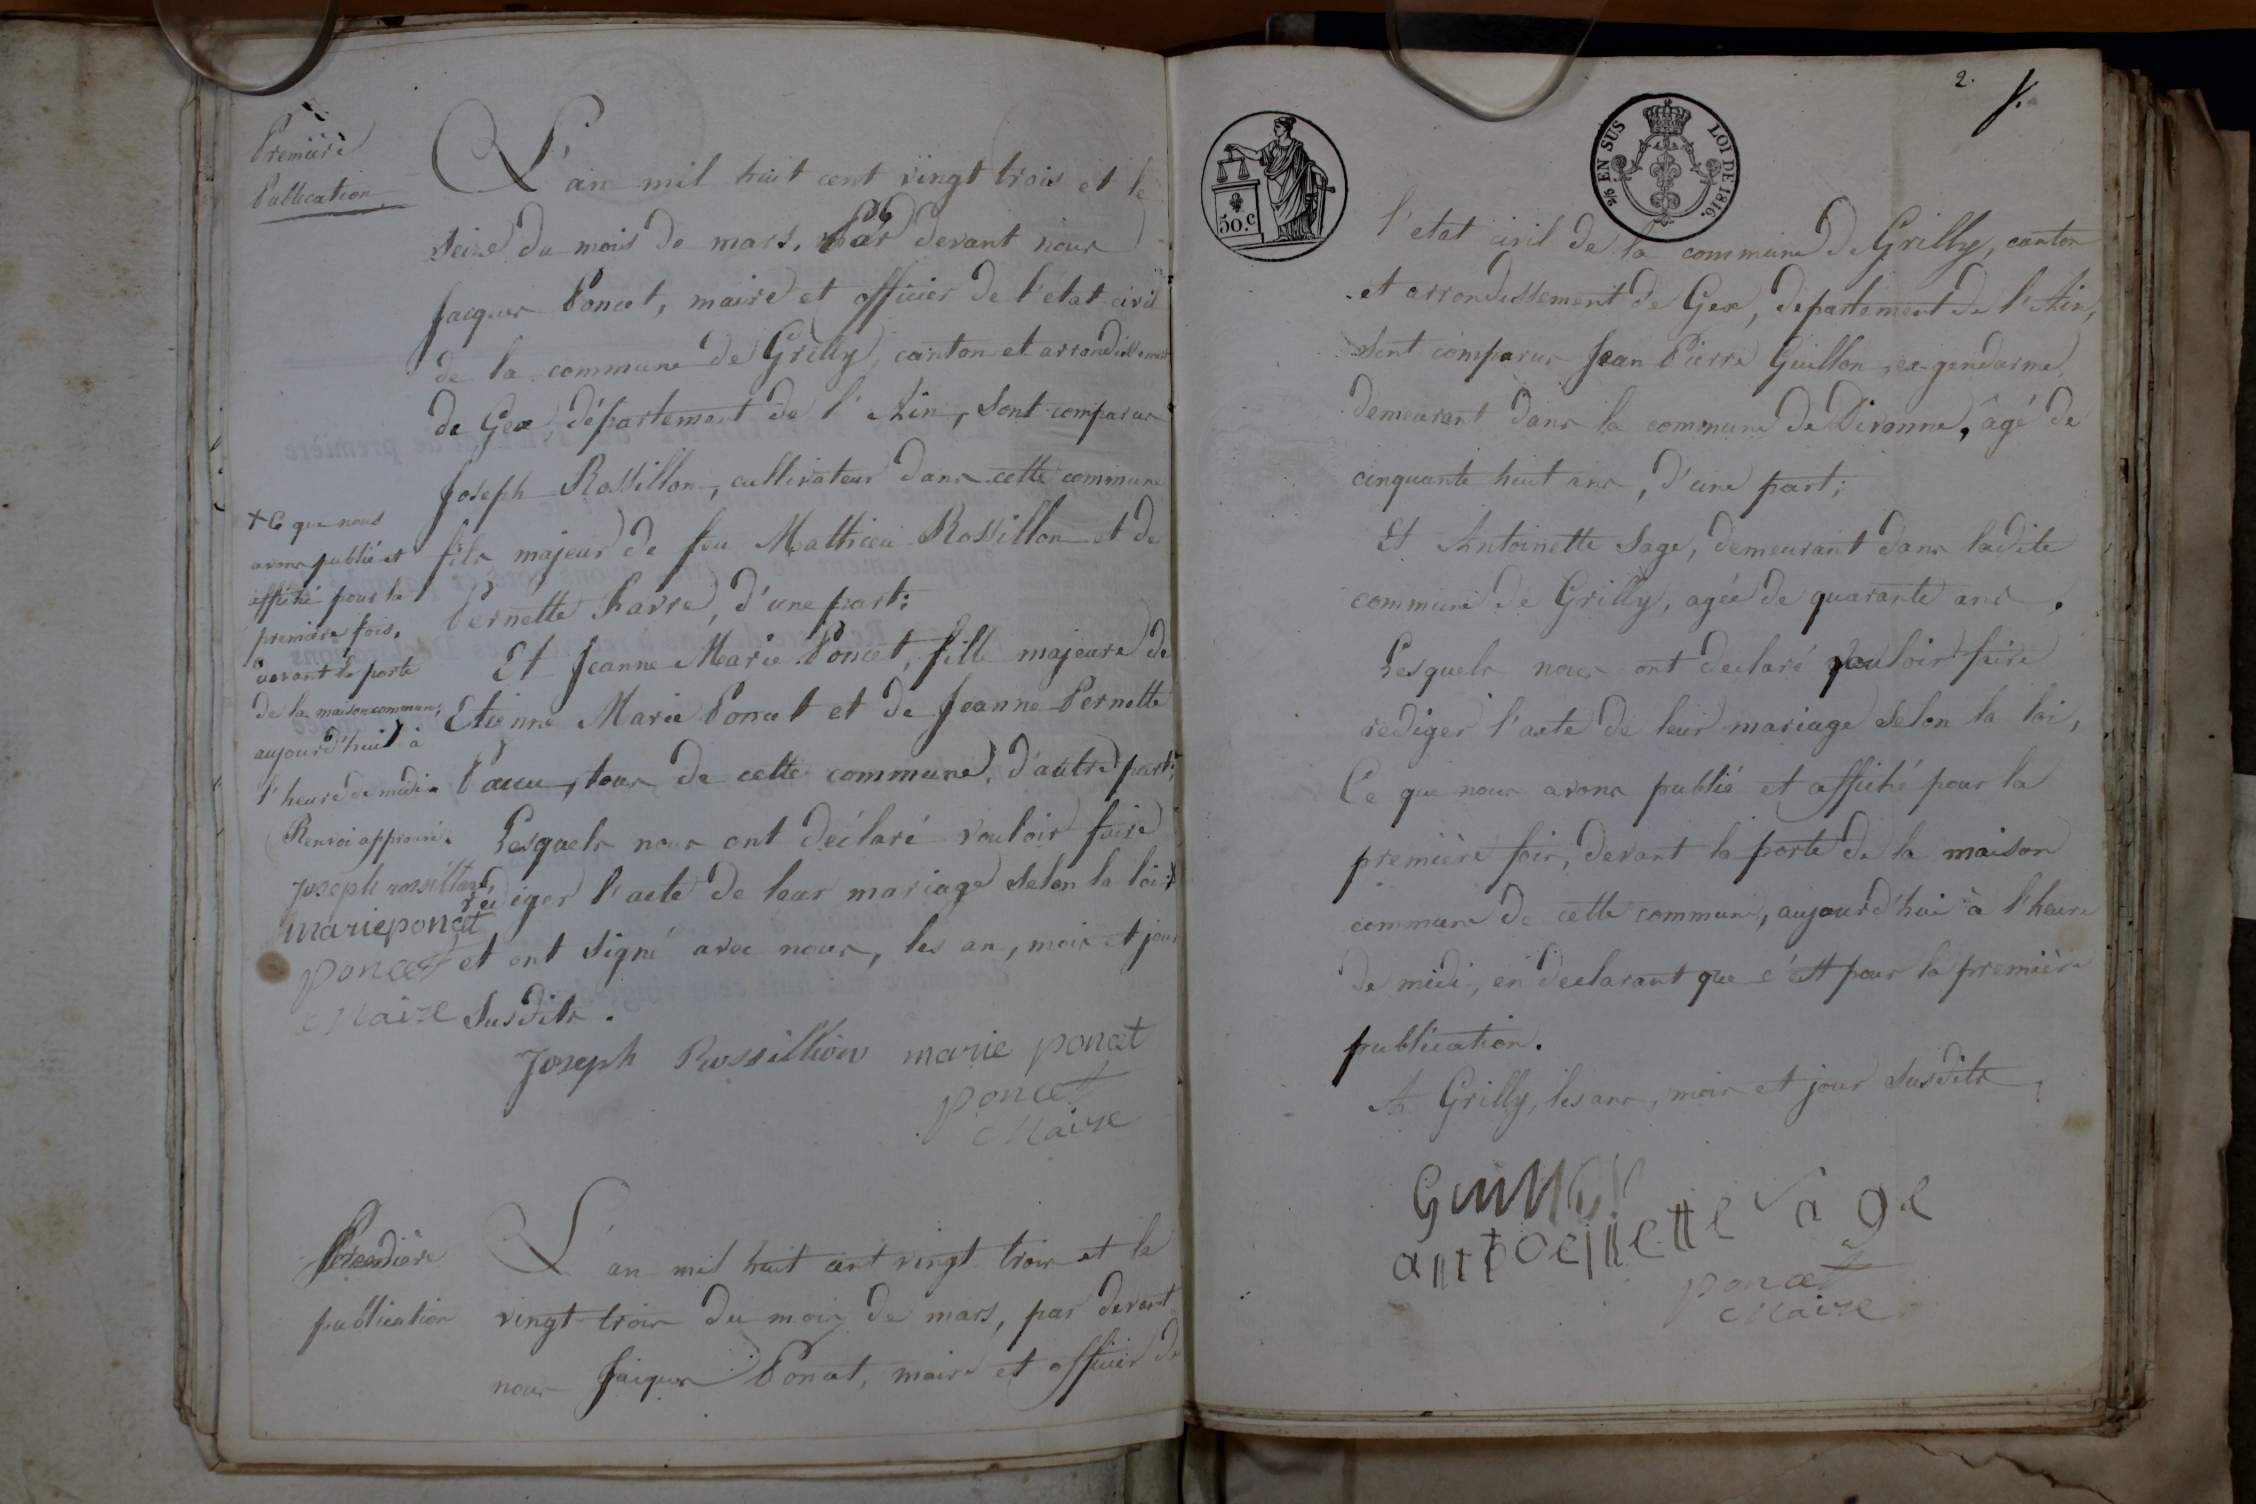 Première
Publication
L'an mil huit cent vingt trois et le
seize du mois de mars, Par devant nous
Jacques Poncet, maire et officier de l'etat civil
de la commune de Grilly, canton et arrondissement
de Gex, département de l'Ain, sont comparus
Joseph Rossillon, cultivateur dans cette commune
fils majeur de feu Mathieu Rossillon et de
Pernette Favre, d'une part;
Et Jeanne Marie Poncet, fille majeure de
Etienne Marie Poncet et de Jeanne Pernette
tous de cette commune, d'autre part;
Lesquels nous ont déclaré vouloir faire
rediger l'acte de leur mariage selon la loi +
et ont signé avec nous, les an, mois et jour
susdits.
+ Ce que nous
avons publié et
affiché pour la
première fois,
devant la porte
de la maison commune,
aujourd'hui à
l'heure de midi.
Renvoi approuvé.
Joseph rossillion
marie poncet
poncet
Maire
Joseph Rossillion marie poncet
poncet
Maire
Première
publication
L'an mil huit cent vingt trois et le
vingt-trois du mois de mars, par devant
nous Jacques Poncet, maire et officier de
2.
50.c
25 EN SUS LOI DE 1816.
l'etat civil de la commune de Grilly, canton
et arrondissement de Gex, departement de l'Ain,
sont comparus Jean Pierre Guillon, ex-gendarme
demeurant dans la commune de Divonne, âgé de
cinquante huit ans, d'une part;
Et Antoinette Sage, demeurant dans ladite
commune de Grilly, agée de quarante ans.
Lesquels nous ont declaré vouloir faire
rediger l'acte de leur mariage selon la loi,
Ce que nous avons publié et affiché pour la
première fois, devant la porte de la maison
commune de cette commune, aujourd'hui à l'heure
de midi, en declarant que c'est pour la première
publication.
A Grilly, les ans, mois et jour susdits
antoeinette sage
poncet
Maire